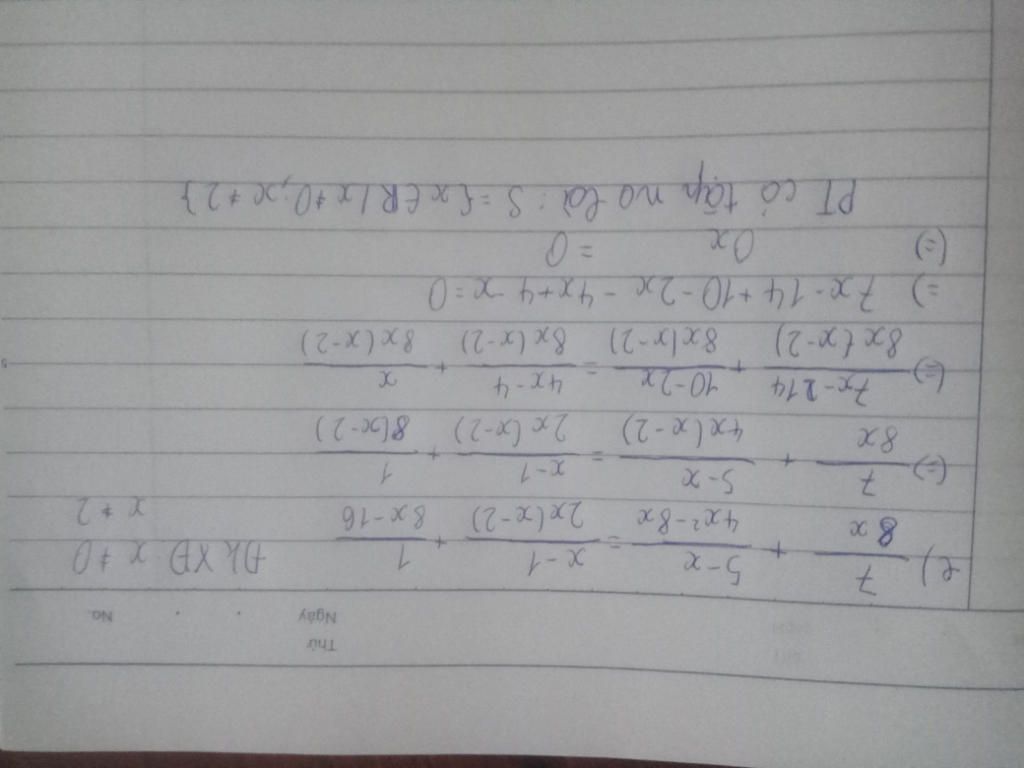 Thứ
Ngày No.
e) 7/8x + 5-x/4x²-8x = x-1/2x(x-2) + 1/8x-16 ĐKXĐ x ≠ 0
x ≠ 2
(=) 7/8x + 5-x/4x(x-2) = x-1/2x(x-2) + 1/8(x-2)
(=) 7x-14/8x(x-2) + 10-2x/8x(x-2) = 4x-4/8x(x-2) + x/8x(x-2)
=) 7x-14+10-2x-4x+4-x=0
(=) 0x = 0
PT có tập no là: S={x∈R/x≠0; x≠2}